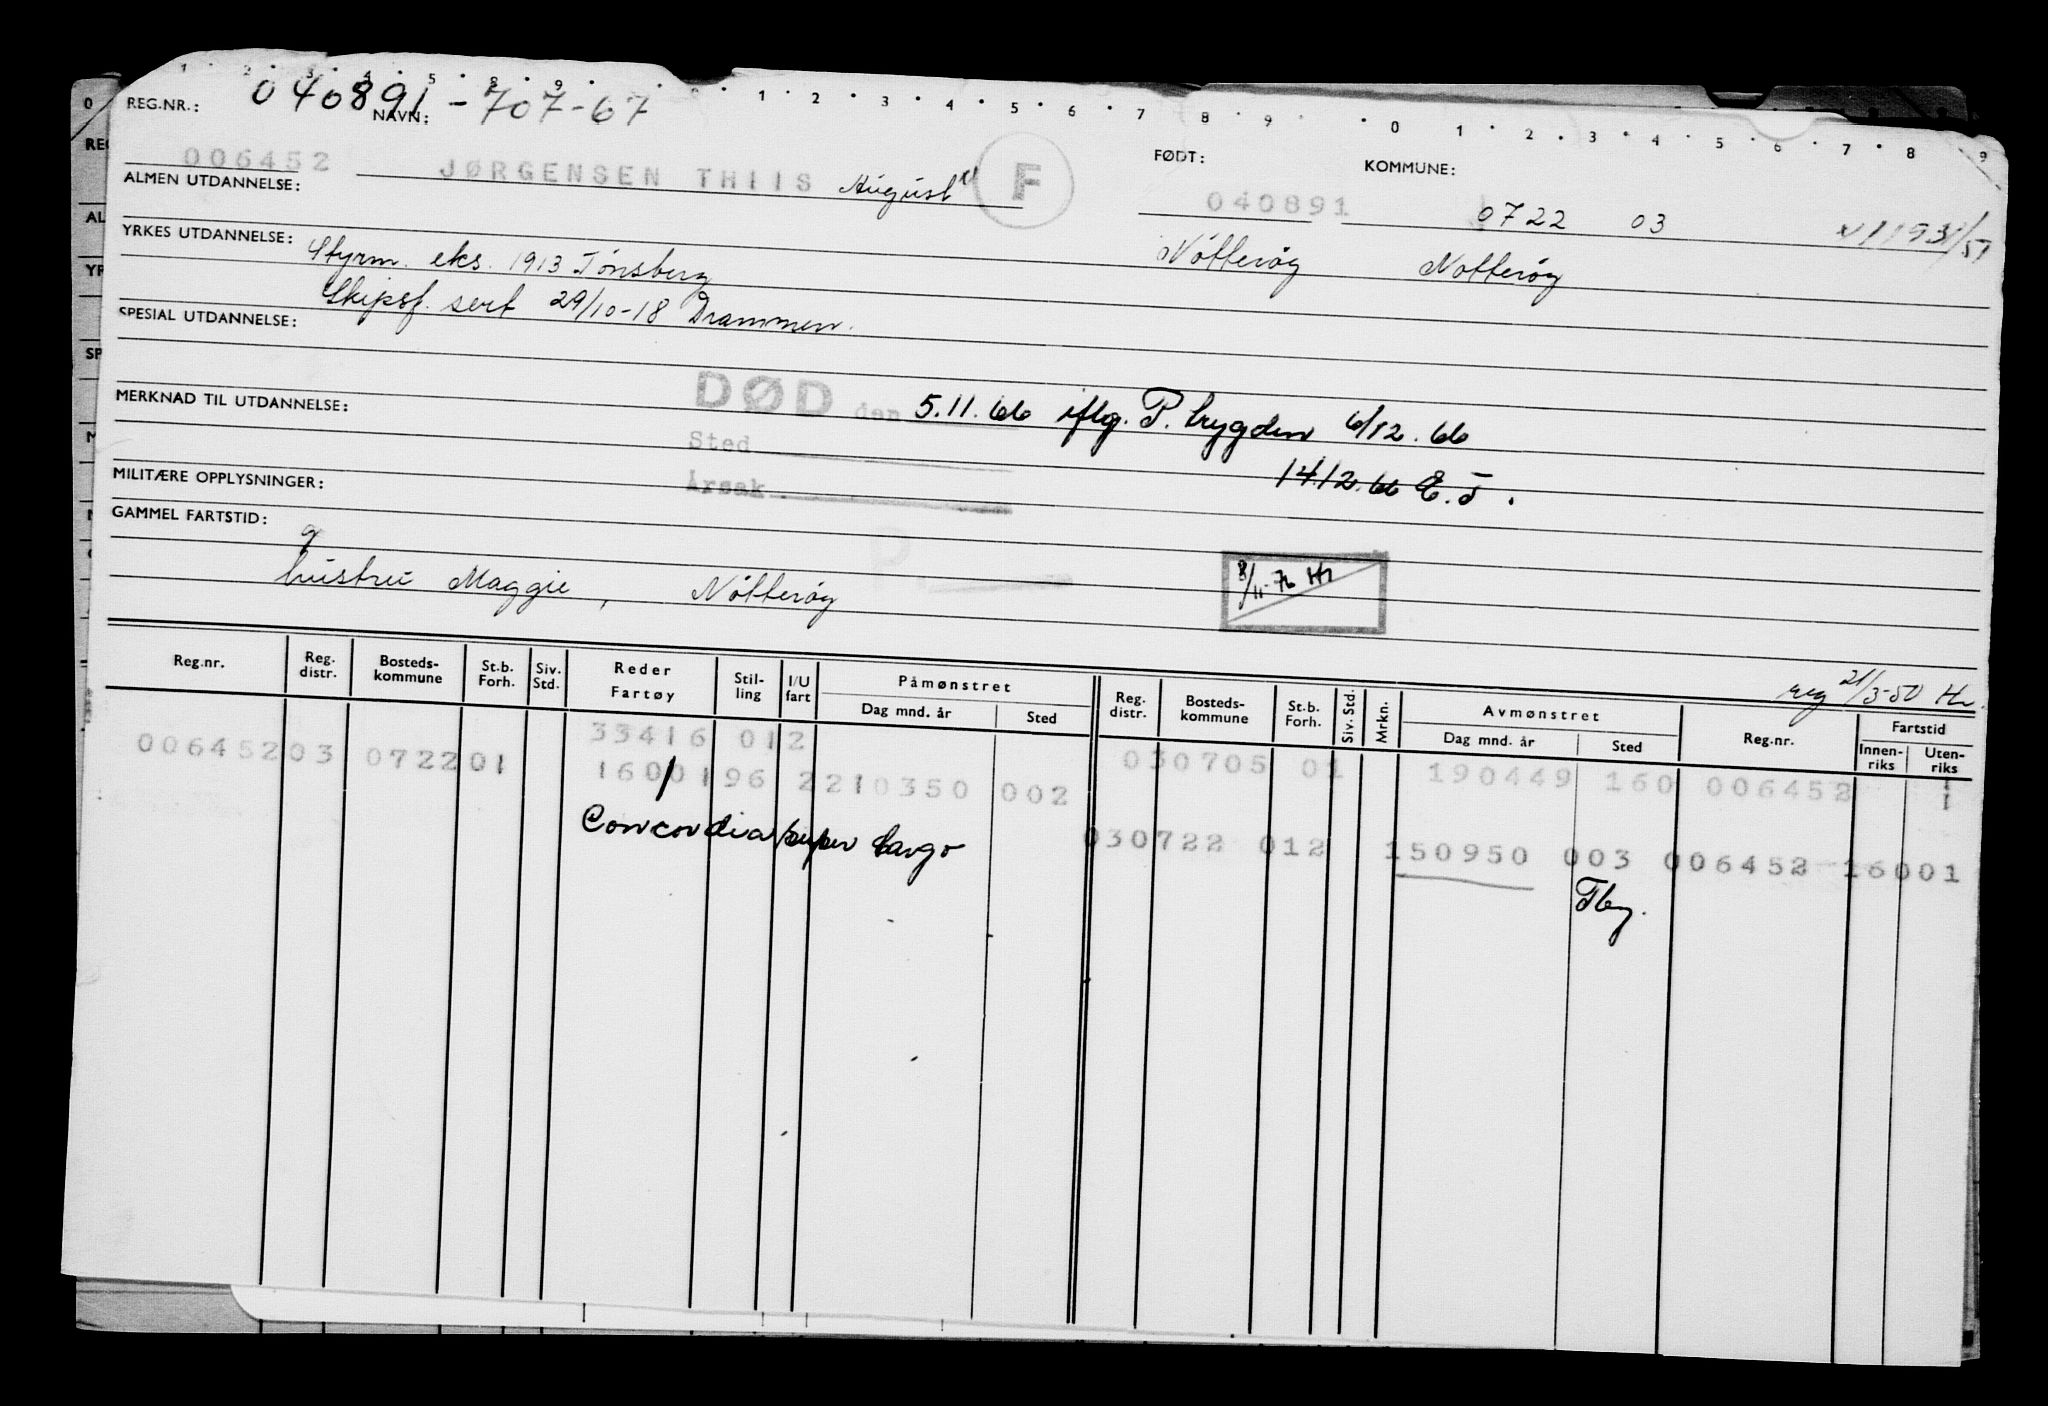 1 2 3 4 5 8 9 0 1 2 3 4 5 6 7 8 9 0 1 2 3 4 5 6 7 8 9
REG.NR.: 040891-707-67
NAVN:
006452 JØRGENSEN THIIS August F
FØDT: KOMMUNE:
ALMEN UTDANNELSE:
040891 0722 03
YRKES UTDANNELSE: Styrm. eks. 1913 Tönsberg
Nötteröy Nötteröy
Skipsf. sert 29/10-18 Drammen.
SPESIAL UTDANNELSE:
DØD den 5.11.66 iflg. P. trygden 6/12.66
MERKNAD TIL UTDANNELSE:
Sted
14.12.66 E.J.
Årsak
MILITÆRE OPPLYSNINGER:
GAMMEL FARTSTID:
g
hustru Maggie, Nötteröy
8/11-76 Hr
reg 21/3-50 Hr.
Reg.nr. Reg. distr. Bosteds-kommune St.b. Forh. Siv. Std. Reder Fartøy Stil-ling I/U fart Påmønstret Dag mnd. år Sted Reg. distr. Bosteds-kommune St.b. Forh. Siv. Std. Mrkn. Avmønstret Dag mnd. år Sted Reg.nr. Fartstid Innen-riks Uten-riks
33416 012
030705 01 190449 160 006452 1
006452 03 0722 01 16001 96 2 210350 002
1
Concordia super Cargo
030722 012 150950 003 006452 16001
Tbg.